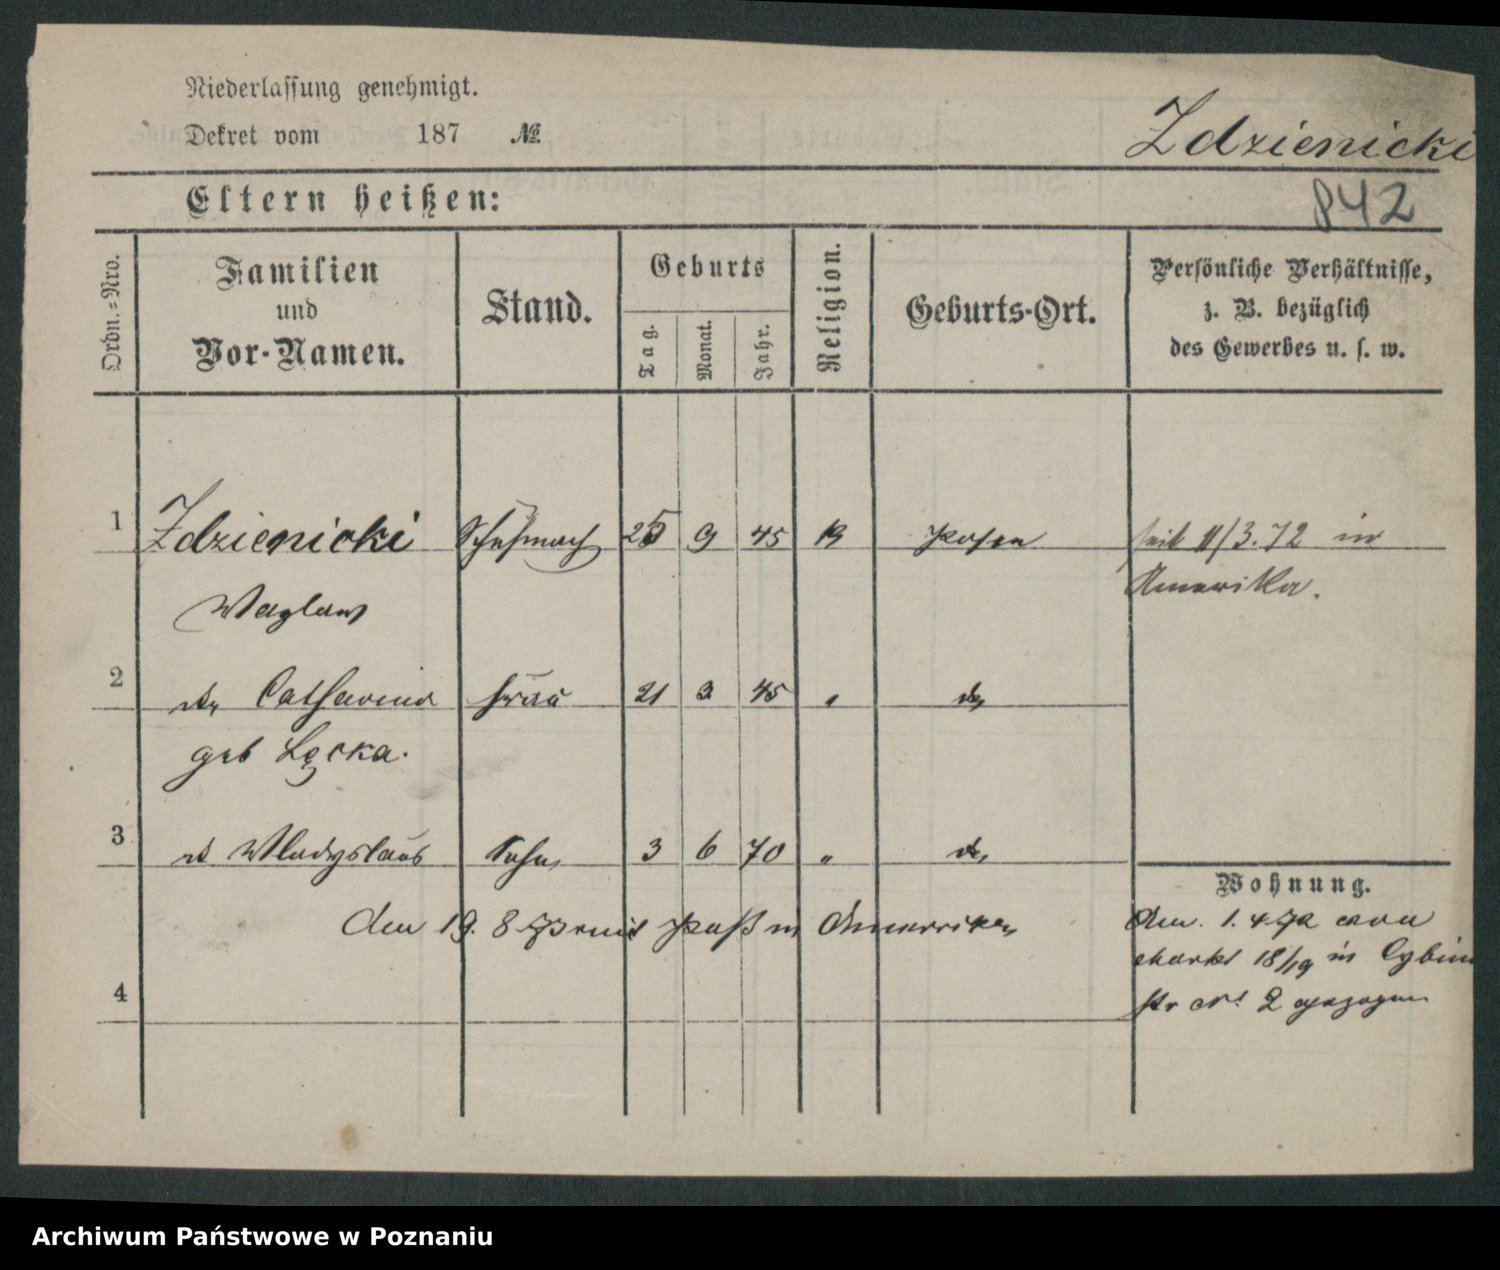 Niederlassung genehmigt.
Dekret vom 187 №.
Zdzienicki
842
Eltern heißen:
Ordn.=Nro.
Familien
und
Vor-Namen.
Stand.
Geburts
Tag.
Monat.
Jahr.
Religion.
Geburts-Ort.
Persönliche Verhältnisse,
z. B. bezüglich
des Gewerbes u. s. w.
1 Zdzienicki Schuhmach 25 9 45 K Posen seit 11/3. 72 in
Amerika.
Waglaw
2 do Catharina Frau 21 3 45 " do
geb Lęcka.
3 do Wladyslaus Sohn 3 6 70 " do
Wohnung.
Den 19. 8 Paß n Amerrika
Den. 1. 4 72 vom
Markt 18/19 in Cybin
str No 2 gezogen
4
Archiwum Państwowe w Poznaniu